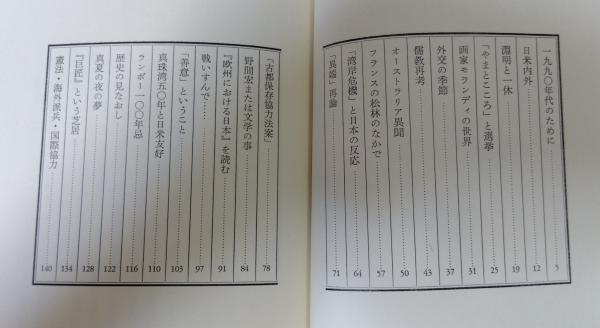 一九九〇年代のために 5
日米内外 12
淵明と一休 19
「やまとごころ」と選挙 25
画家モランディの世界 31
外交の季節 37
儒教再考 43
オーストラリア異聞 50
フランスの松林のなかで 57
「湾岸危機」と日本の反応 64
「異端」再論 71
「古都保存協力法案」 78
野間宏または文学の事 84
『欧州における日本』を読む 91
戦いすんで…… 97
「善意」ということ 103
真珠湾五〇年と日米友好 110
ランボー一〇〇年忌 116
歴史の見なおし 122
真夏の夜の夢 128
『巨匠』という芝居 134
憲法・海外派兵・国際協力 140